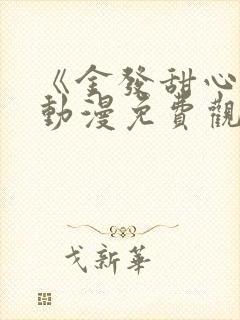 《金發甜心
動漫免費觀
戈新華